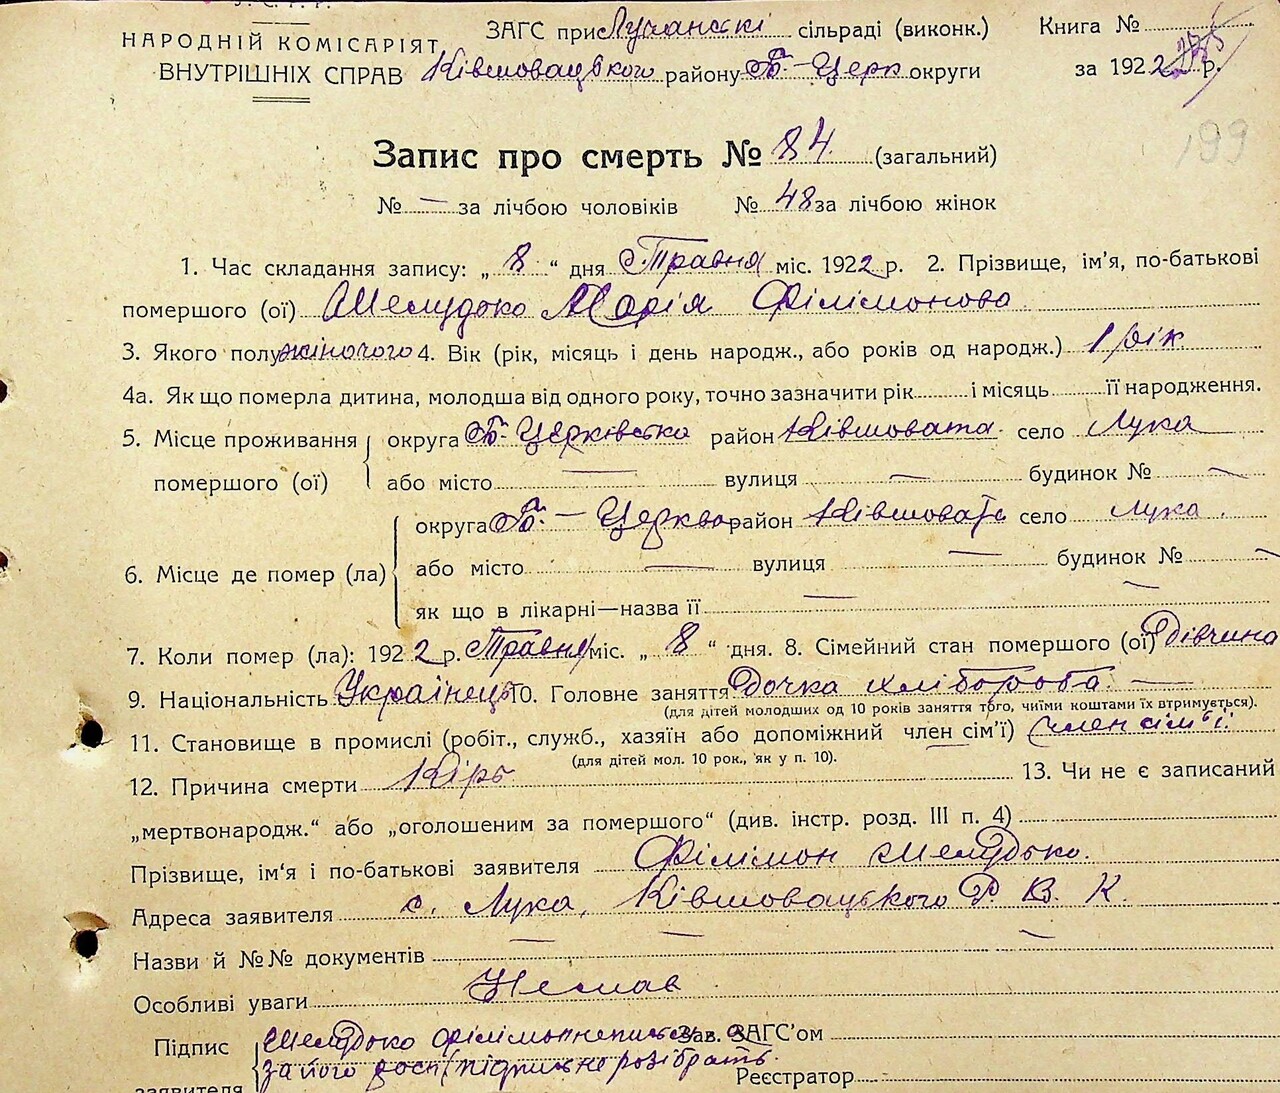 У. С. Р. Р.
НАРОДНІЙ КОМІСАРІЯТ
ВНУТРІШНІХ СПРАВ
ЗАГС при Лучанські сільраді (виконк.) Книга №
Ківшовацького району Б-Церк округи за 1922 р.
199
Запис про смерть № 84 (загальний)
№ — за лічбою чоловіків № 48 за лічбою жінок
1. Час складання запису: „ 8 “ дня Травня міс. 1922 р. 2. Прізвище, ім'я, по-батькові
помершого (ої) Шелудько Марія Філімонова
3. Якого полу жіночого 4. Вік (рік, місяць і день народж., або років од народж.) 1 рік
4а. Як що померла дитина, молодша від одного року, точно зазначити рік і місяць її народження.
5. Місце проживання помершого (ої) округа Б-Церківська район Ківшовата село Лука
або місто — вулиця — будинок № —
6. Місце де помер (ла) округа Б.-Церква район Ківшоват село Лука.
або місто — вулиця — будинок № —
як що в лікарні—назва її — —
7. Коли помер (ла): 1922 р. Травня міс. „ 8 “ дня. 8. Сімейний стан помершого (ої) Дівчина
9. Національність Українець 10. Головне заняття Дочка хлібороба. —
(для дітей молодших од 10 років заняття того, чиїми коштами їх втримується).
11. Становище в промислі (робіт., служб., хазяїн або допоміжний член сім'ї) член сім'ї.
(для дітей мол. 10 рок., як у п. 10).
12. Причина смерти Кірь 13. Чи не є записаний
„мертвонародж.“ або „оголошеним за помершого“ (див. інстр. розд. III п. 4)
Прізвище, ім'я і по-батькові заявителя Філімон Шелудько.
Адреса заявителя с. Лука, Ківшовацького Р. В. К.
Назви й №№ документів — — —
Особливі уваги Немає
Підпис заявителя Шелудько Філімон неписьм Зав. ЗАГС'ом
за його розп (підпись не розібрать. Реєстратор